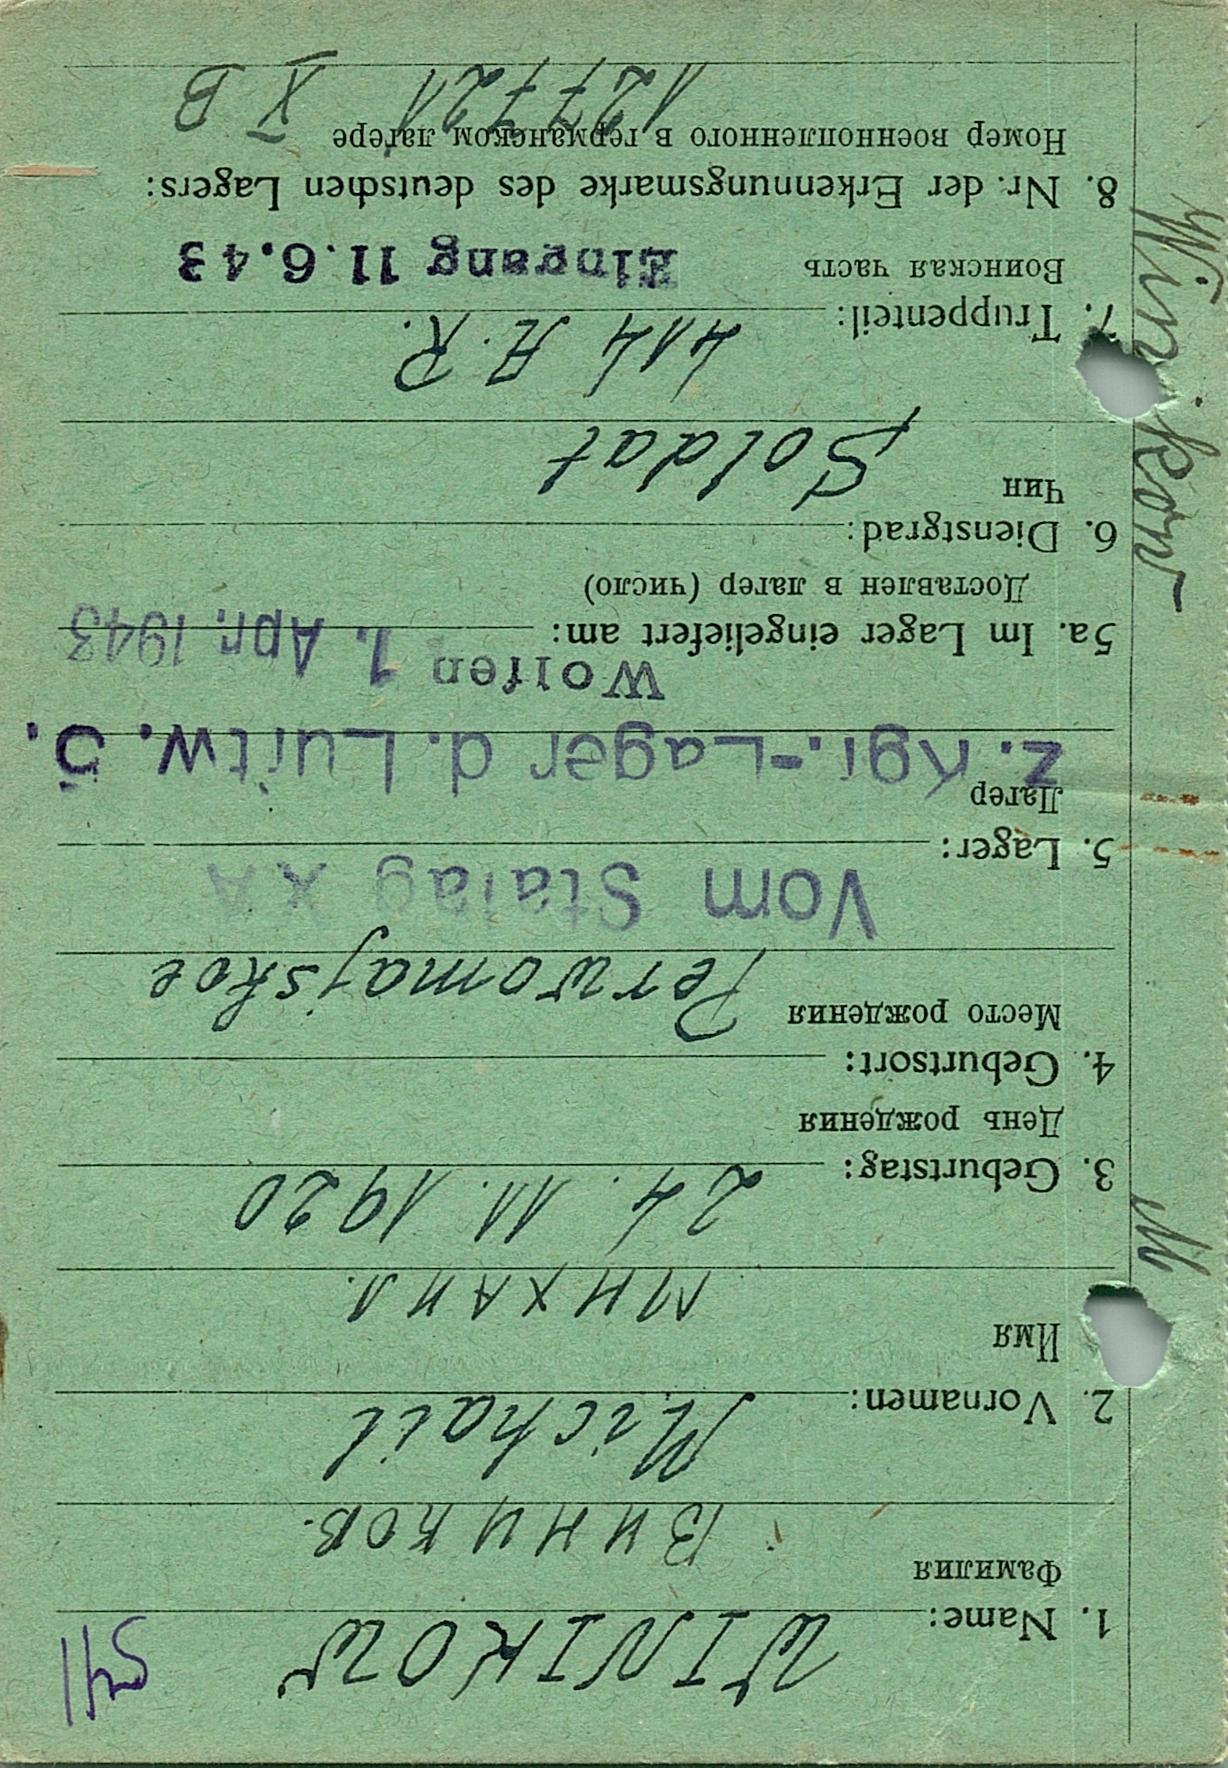 541
1. Name: WINIKOW
Фамилия
Виников.
2. Vornamen: Michail
Имя
Михаил.
3. Geburtstag: 24. 11. 1920
День рождения
4. Geburtsort: Perwomajskoe
Место рождения
Vom Stalag X A
5. Lager:
Лагер
z. Kgf.-Lager d. Luftw. 5.
Wolfen 1. Apr. 1943
5a. Im Lager eingeliefert am:
Доставлен в лагер (число)
6. Dienstgrad: Soldat
Чин
7. Truppenteil: 414 A. R.
Воинская часть
Eingang 11.6.43
8. Nr. der Erkennungsmarke des deutschen Lagers:
Номер военнопленного в германском лагере
127721 X B
M
Winikow